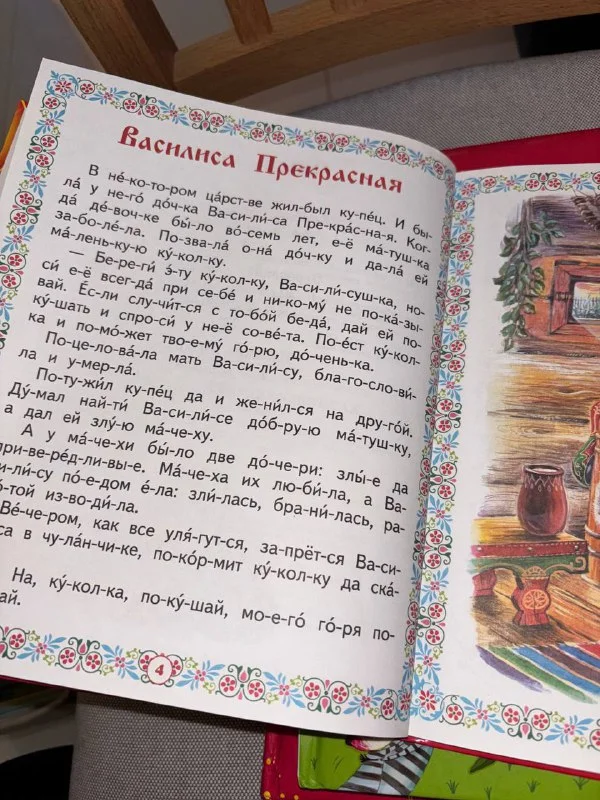 Василиса Прекрасная
В не́-ко-то-ром ца́рст-ве жил-был ку-пе́ц. И бы-
ла́ у не-го́ до́ч-ка Ва-си-ли́-са Пре-кра́с-на-я. Ког-
да́ де́-воч-ке бы́-ло во́-семь лет, е-ё ма́-туш-ка
за-бо-ле́-ла. По-зва-ла́ о-на́ до́ч-ку и да-ла́ ей
ма́-лень-ку-ю ку́-кол-ку.
— Бе-ре-ги́ э́-ту ку́-кол-ку, Ва-си-ли́-суш-ка, но-
си́ е-ё всег-да́ при се-бе́ и ни-ко-му́ не по-ка́-зы-
вай. Е́с-ли слу-чи́т-ся с то-бо́й бе-да́, дай ей по-
ку́-шать и спро-си́ у не-ё со-ве́-та. По-е́ст ку́-кол-
ка и по-мо́-жет тво-е-му́ го́-рю, до́-чень-ка.
По-це-ло-ва́-ла мать Ва-си-ли́-су, бла-го-сло-ви́-
ла и у-мер-ла́.
По-ту-жи́л ку-пе́ц да и же-ни́л-ся на дру-го́й.
Ду́-мал най-ти́ Ва-си-ли́-се до́б-ру-ю ма́-туш-ку,
а дал ей злу́-ю ма́-че-ху.
А у ма́-че-хи бы́-ло две до́-че-ри: злы́-е да
при-ве-ре́д-ли-вы-е. Ма́-че-ха их лю-би́-ла, а Ва-
си-ли́-су по-е-дом е́-ла: зли́-лась, бра-ни́-лась, ра-
бо́-той из-во-ди́-ла.
Ве́-че-ром, как все уля́-гут-ся, за-прёт-ся Ва-си-
са в чу-ла́н-чи-ке, по-ко́р-мит ку́-кол-ку да ска́-
На, ку́-кол-ка, по-ку́-шай, мо-е-го́ го́-ря по-
ай.
4